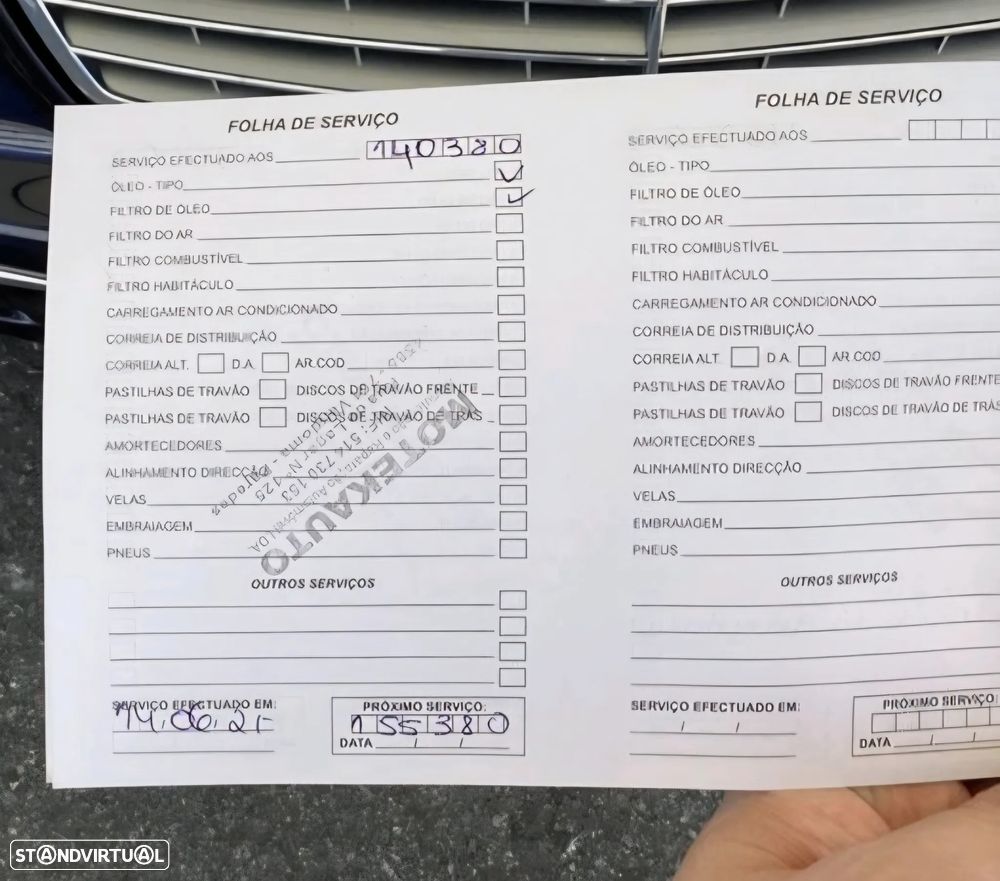 FOLHA DE SERVIÇO
SERVIÇO EFECTUADO AOS 140380
ÓLEO - TIPO
FILTRO DE ÓLEO
FILTRO DO AR
FILTRO COMBUSTÍVEL
FILTRO HABITÁCULO
CARREGAMENTO AR CONDICIONADO
CORREIA DE DISTRIBUIÇÃO
CORREIA ALT. D.A. AR.COD
PASTILHAS DE TRAVÃO DISCOS DE TRAVÃO FRENTE
PASTILHAS DE TRAVÃO DISCOS DE TRAVÃO DE TRÁS
AMORTECEDORES
ALINHAMENTO DIRECÇÃO
VELAS
EMBRAIAGEM
PNEUS
OUTROS SERVIÇOS
SERVIÇO EFECTUADO EM:
14.06.21
PRÓXIMO SERVIÇO:
155380
DATA / /
MOTEKAUTO
514 730 153
FOLHA DE SERVIÇO
SERVIÇO EFECTUADO AOS
ÓLEO - TIPO
FILTRO DE ÓLEO
FILTRO DO AR
FILTRO COMBUSTÍVEL
FILTRO HABITÁCULO
CARREGAMENTO AR CONDICIONADO
CORREIA DE DISTRIBUIÇÃO
CORREIA ALT. D.A. AR.COD
PASTILHAS DE TRAVÃO DISCOS DE TRAVÃO FRENTE
PASTILHAS DE TRAVÃO DISCOS DE TRAVÃO DE TRÁS
AMORTECEDORES
ALINHAMENTO DIRECÇÃO
VELAS
EMBRAIAGEM
PNEUS
OUTROS SERVIÇOS
SERVIÇO EFECTUADO EM:
/ /
PRÓXIMO SERVIÇO:
DATA / /
STANDVIRTUAL